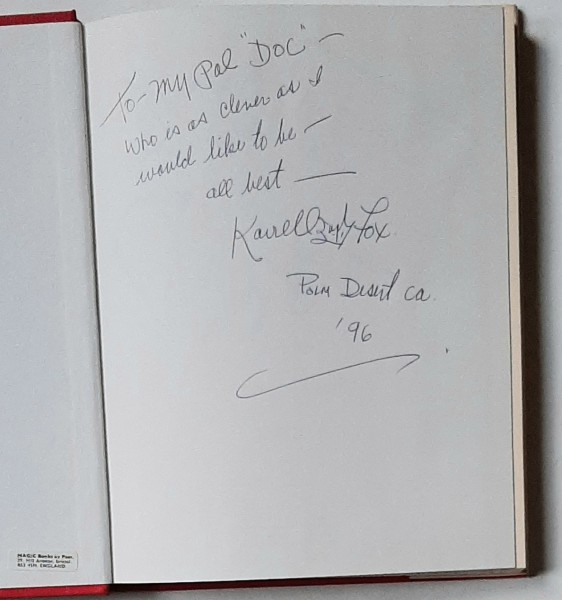 To - My Pal "DOC" —
who is as clever as I
would like to be —
all best —
Karrell Fox
Palm Desert Ca.
'96
MAGIC Books
ENGLAND